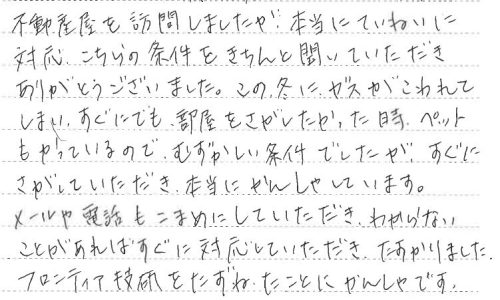 不動産屋も訪問しましたが、本当にていねいに
対応、こちらの条件をきちんと聞いていただき
ありがとうございました。この、冬に、ガスがこわれて
しまい、すぐにでも、部屋をさがしたかった時、ペット
もかっているので、むずかしい条件でしたが、すぐに
さがしていただき、本当にかんしゃしています。
メールや電話もこまめにしていただき、わからない
ことがあればすぐに対応していただき、たすかりました
フロンティア技研をたずねたことにかんしゃです。